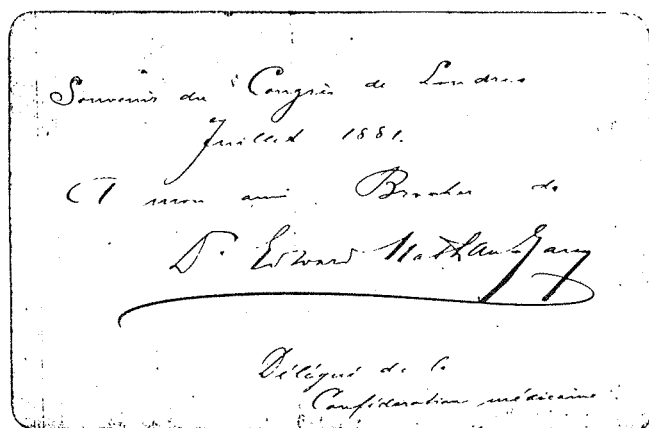 Souvenir du Congrès de Londres
Juillet 1881.
A mon ami Brocher de
Dr. Edward Nathan-Ganz
Délégué de la
Confédération méxicaine